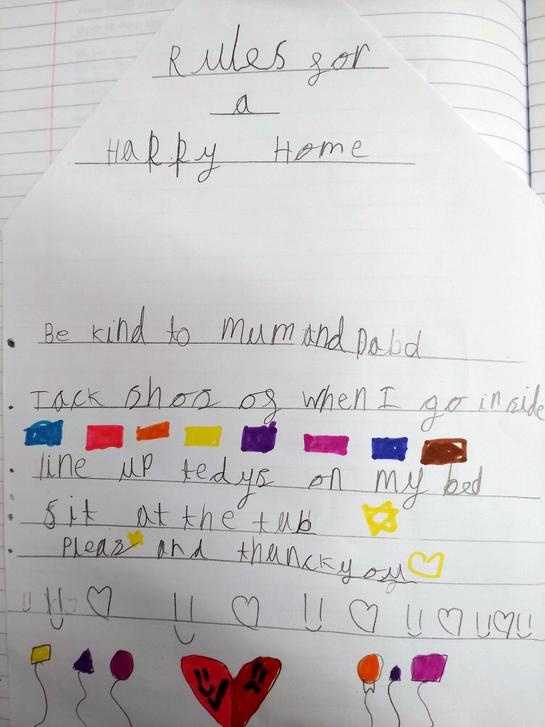 Rules for
a
Happy Home
Be kind to mum and Dabd
Tack shos of when I go inside
line up tedys on my bed
sit at the tab
Pleas and thanckyou